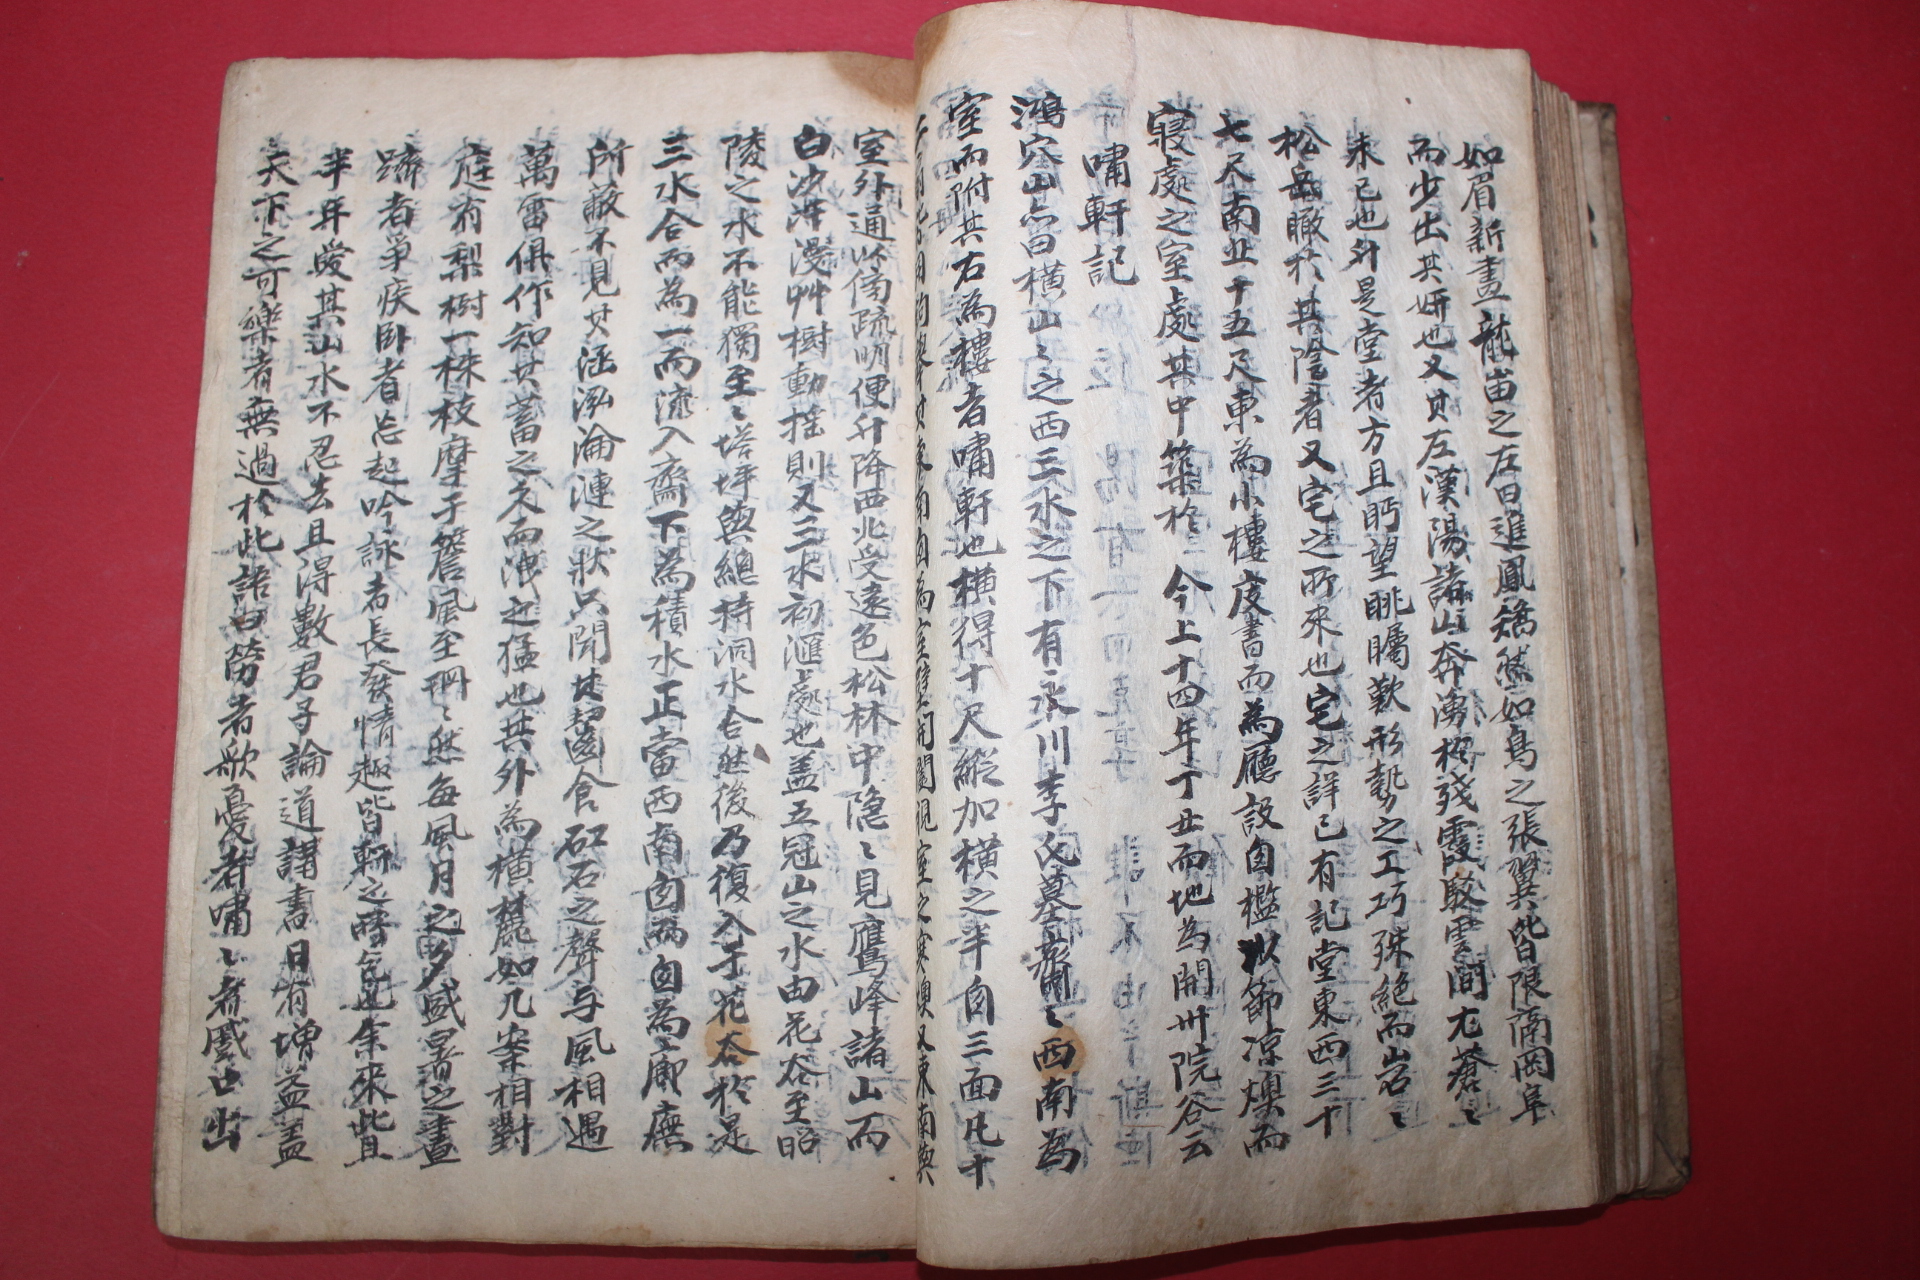 如眉新畫龍岫之左曰進鳳矯然如鳥之張翼皆隈啇岡阜
而少出其妍也又其左漢陽諸山奔湧松殘霞駁雲間尤蒼〻
未已也升是堂者方且眄望眺矚歎形勢之工巧殊絕而岩〻
松岳瞰於其陰者又宅之所來也宅之詳已有記堂東西三十
七尺南北十五尺東為小樓庋書而為廳設囱檻以節凉燠而
寢處之室〻處其中築於 今上十四年丁丑而地為開州院谷云
嘯軒記
鴻穴山亦曰橫山〻之西三水之下有永川李氏墓齋〻西南為
室而附其右為樓者嘯軒也橫得十尺縱加橫之半囱三面凡十
室外通以傍疏明便升降西北受遠色松林中隐〻見鷹峰諸山而
白沙渀漫艸樹動搖則又三水初滙處也盖五冠山之水由花谷至昭
陵之水不能獨至〻塔坪與總持洞水合然後乃復入于花谷於是
三水合而為一而流入齋下為積水正當西南囱兩囱為廊廡
所蔽不見其涵泓淪漣之狀只聞其齧食矼石之聲与風相遇
萬雷俱作知其蓄之久而洩之猛也其外為橫麓如几案相對
庭有梨樹一株枝摩于簷風至冊〻然每風月之夕盛暑之晝
躋者第疾卧者忘起吟詠者長發情趣皆軒之勝色也余來此且
半年愛其山水不忍去且得數君子論道講書日有增益盖
天下之可樂者無過於此語曰勞者歌憂者嘯〻者蹙口出